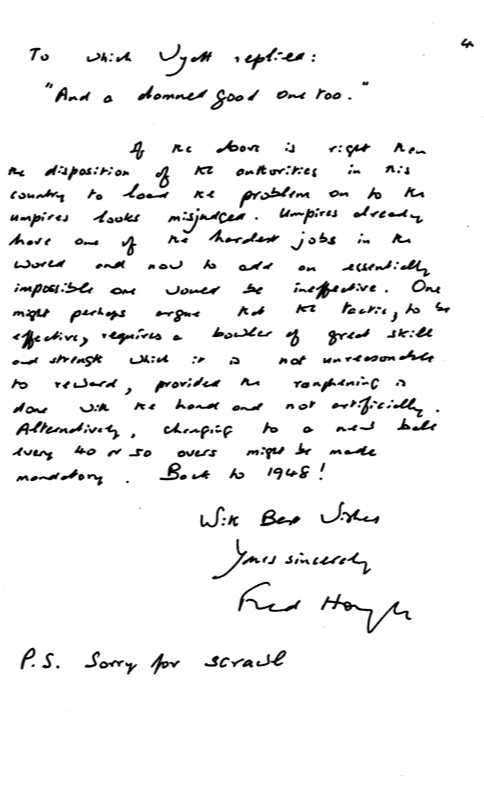 4
To which Wyatt replied:
"And a damned good one too."
If the above is right then
the disposition of the authorities in this
country to load the problem on to the
umpires looks misjudged. Umpires already
have one of the hardest jobs in the
world and now to add an essentially
impossible one would be ineffective. One
might perhaps argue that the tactic, to be
effective, requires a bowler of great skill
and strength which it is not unreasonable
to reward, provided the roughening is
done with the hand and not artificially.
Alternatively, changing to a new ball
every 40 or 50 overs might be made
mandatory. Back to 1948!
With Best Wishes
Yours sincerely
Fred Hoyle
P.S. Sorry for scrawl